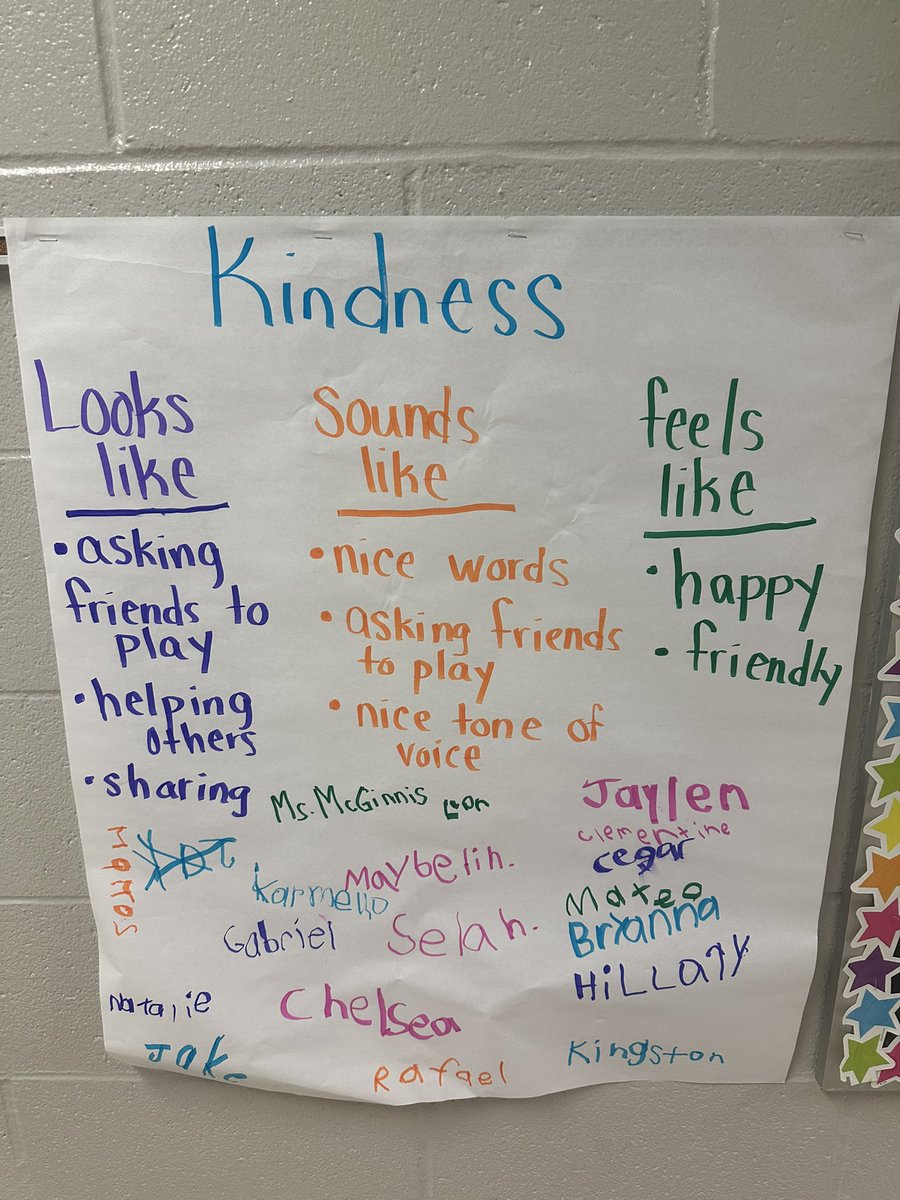 Kindness
Looks
like
• asking
friends to
play
• helping
others
• sharing
Sounds
like
• nice words
• asking friends
to play
• nice tone of
voice
feels
like
• happy
• friendly
Ms. McGinnis
Leon
Jaylen
Clementine
cegar
Marros
Karmello
Maybelin.
Mateo
Gabriel
Selah.
Bryanna
HiLLary
Natalie
Chelsea
Jake
Rafael
Kingston